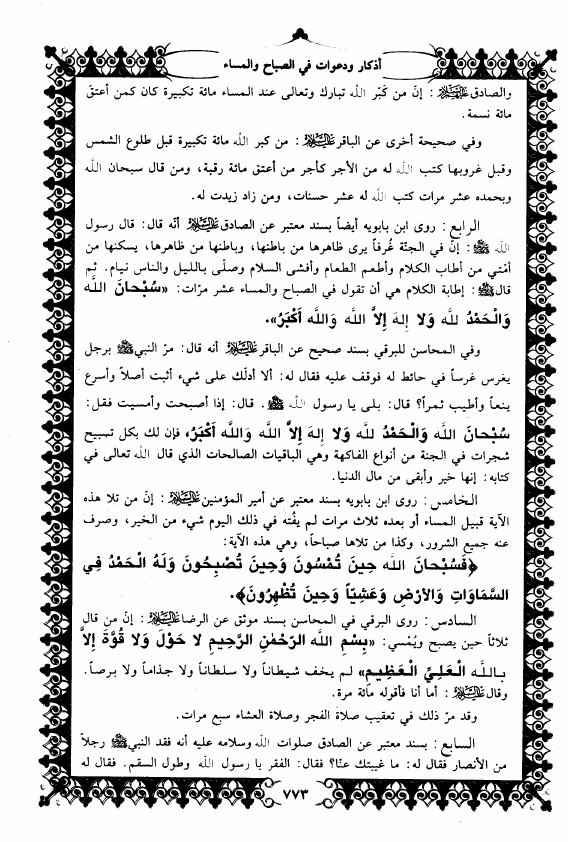 أذكار ودعوات في الصباح والمساء
والصادق عليه السلام : إنّ من كَبّر الله تبارك وتعالى عند المساء مائة تكبيرة كان كمن أعتق
مائة نسمة.
وفي صحيحة أخرى عن الباقر عليه السلام : من كبر الله مائة تكبيرة قبل طلوع الشمس
وقبل غروبها كتب الله له من الأجر كأجر من أعتق مائة رقبة، ومن قال سبحان الله
وبحمده عشر مرات كتب الله له عشر حسنات، ومن زاد زيدت له.
الرابع : روى ابن بابويه أيضاً بسند معتبر عن الصادق عليه السلام أنّه قال: قال رسول
الله ﷺ : إنّ في الجنّة غُرفاً يرى ظاهرها من باطنها، وباطنها من ظاهرها، يسكنها من
أمّتي من أطاب الكلام وأطعم الطعام وأفشى السلام وصلّى بالليل والناس نيام. ثم
قال ﷺ : إطابة الكلام هي أن تقول في الصباح والمساء عشر مرّات: «سُبْحانَ الله
وَالْحَمْدُ لله وَلا إلهَ إلاَّ الله وَالله أَكْبَرُ».
وفي المحاسن للبرقي بسند صحيح عن الباقر عليه السلام أنه قال: مرّ النبي ﷺ برجل
يغرس غرساً في حائط له فوقف عليه فقال له: ألا أدلّك على شيء أثبت أصلاً وأسرع
ينعاً وأطيب ثمراً؟ قال: بلى يا رسول الله ﷺ . قال: إذا أصبحت وأمسيت فقل:
سُبْحانَ الله وَالْحَمْدُ لله وَلا إلهَ إلاَّ الله وَالله أَكْبَرُ، فإن لك بكل تسبيح
شجرات في الجنة من أنواع الفاكهة وهي الباقيات الصالحات الذي قال الله تعالى في
كتابه: إنها خير وأبقى من مال الدنيا.
الخامس : روى ابن بابويه بسند معتبر عن أمير المؤمنين عليه السلام : إنّ من تلا هذه
الآية قبيل المساء أو بعده ثلاث مرات لم يفُته في ذلك اليوم شيء من الخير، وصرف
عنه جميع الشرور، وكذا من تلاها صباحاً، وهي هذه الآية:
﴿فَسُبْحانَ الله حِينَ تُمْسُونَ وَحِينَ تُصْبِحُونَ وَلَهُ الْحَمْدُ فِي
السَّمَاوَاتِ وَالأَرْضِ وَعَشِيّاً وَحِينَ تُظْهِرُونَ﴾.
السادس : روى البرقي في المحاسن بسند موثق عن الرضا عليه السلام : إنّ من قال
ثلاثاً حين يصبح ويُمْسي: «بِسْمِ الله الرَّحْمٰنِ الرَّحِيمِ لا حَوْلَ وَلا قُوَّةَ إلاَّ
بالله الْعَلِيِّ الْعَظِيمِ» لم يخف شيطاناً ولا سلطاناً ولا جذاماً ولا برصاً.
وقال عليه السلام : أما أنا فأقوله مائة مرة.
وقد مرّ ذلك في تعقيب صلاة الفجر وصلاة العشاء سبع مرات.
السابع : بسند معتبر عن الصادق صلوات الله وسلامه عليه أنه فقد النبي ﷺ رجلاً
من الأنصار فقال له: ما غيبتك عنّا؟ فقال: الفقر يا رسول الله وطول السقم. فقال له
٧٧٣